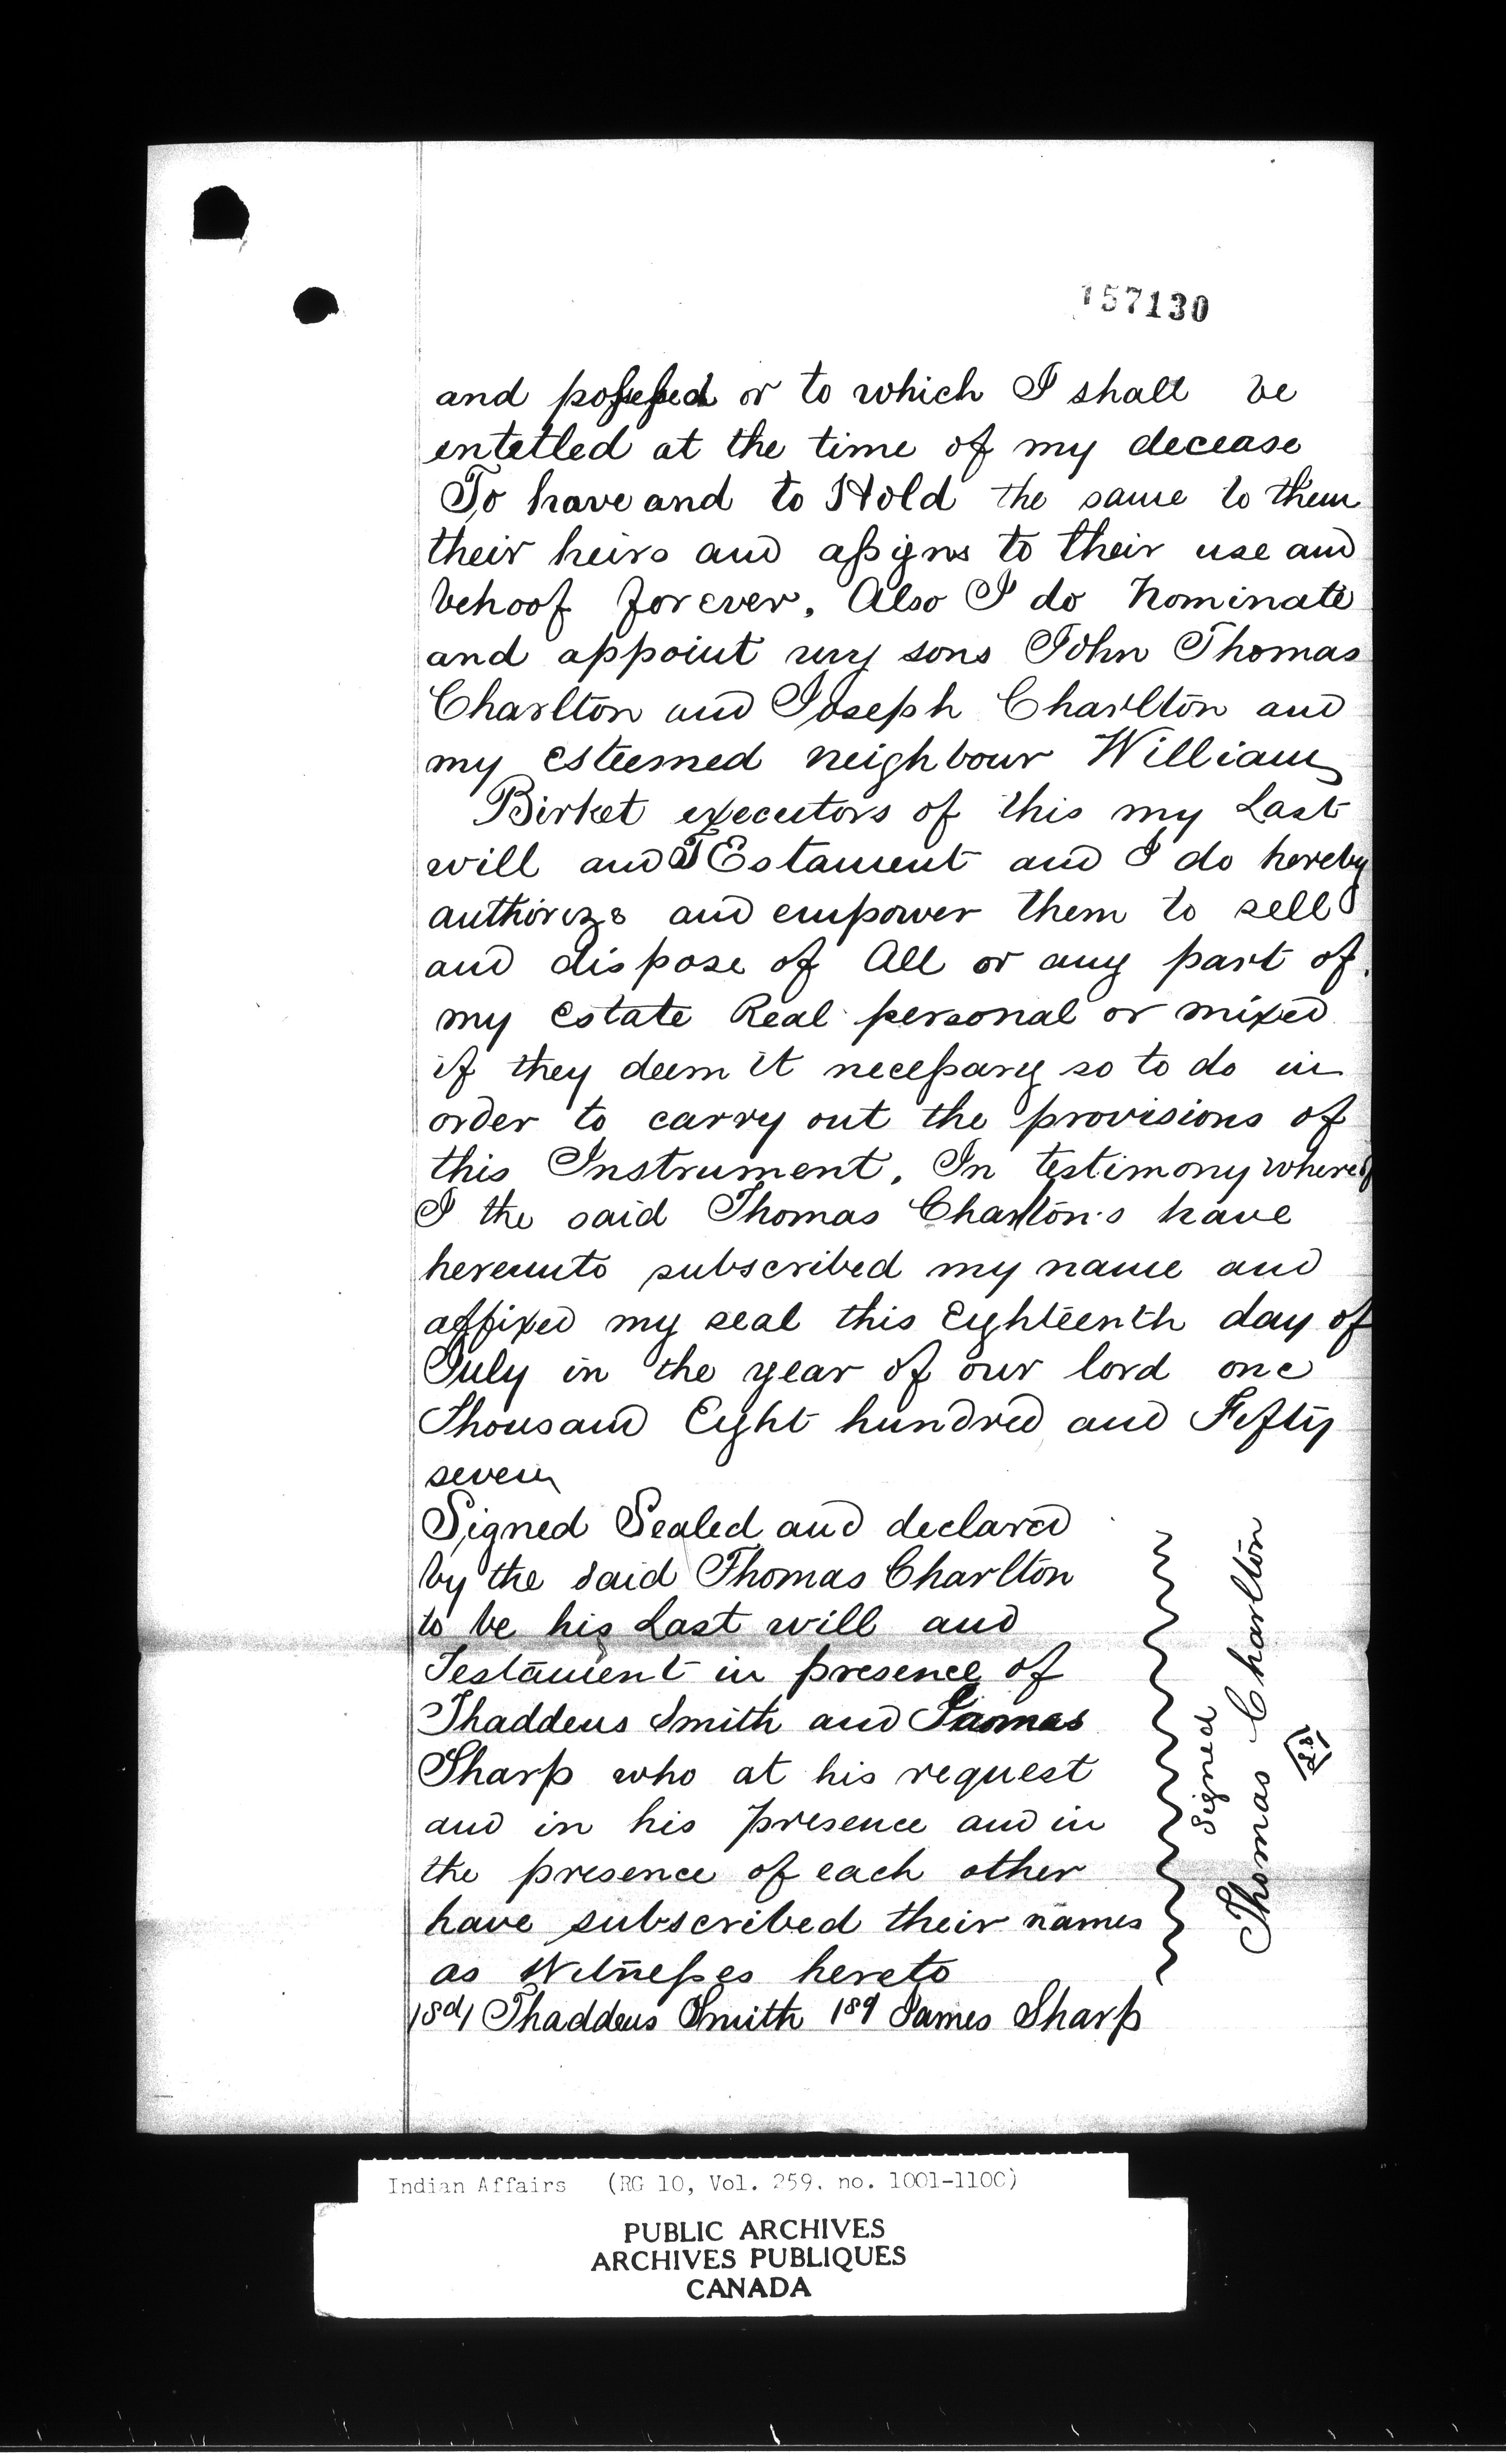 157130
and possessed or to which I shall be
entetled at the time of my decease
To have and to Hold the same to them
their heirs and assigns to their use and
behoof forever. Also I do Nominate
and appoint my sons John Thomas
Charlton and Joseph Charlton and
my esteemed neighbour William
Birket executors of this my Last
will and TEstament and I do hereby
authorize and empower them to sell
and dispose of All or any part of
my estate Real personal or mixed
if they deem it necessary so to do in
order to carry out the provisions of
this Instrument. In testimony whereof
I the said Thomas Charlton's have
hereunto subscribed my name and
affixed my seal this Eighteenth day of
July in the year of our lord one
Thousand Eight hundred and Fifty
seven
Signed Sealed and declared
by the said Thomas Charlton
to be his Last will and
Testament in presence of
Thaddeus Smith and James
Sharp who at his request
and in his presence and in
the presence of each other
have subscribed their names
as Witnesses hereto
/Sd/ Thaddeus Smith James Sharp
Signed
Thomas Charlton
Indian Affairs (RG 10, Vol. 259. no. 1001-1100)
PUBLIC ARCHIVES
ARCHIVES PUBLIQUES
CANADA